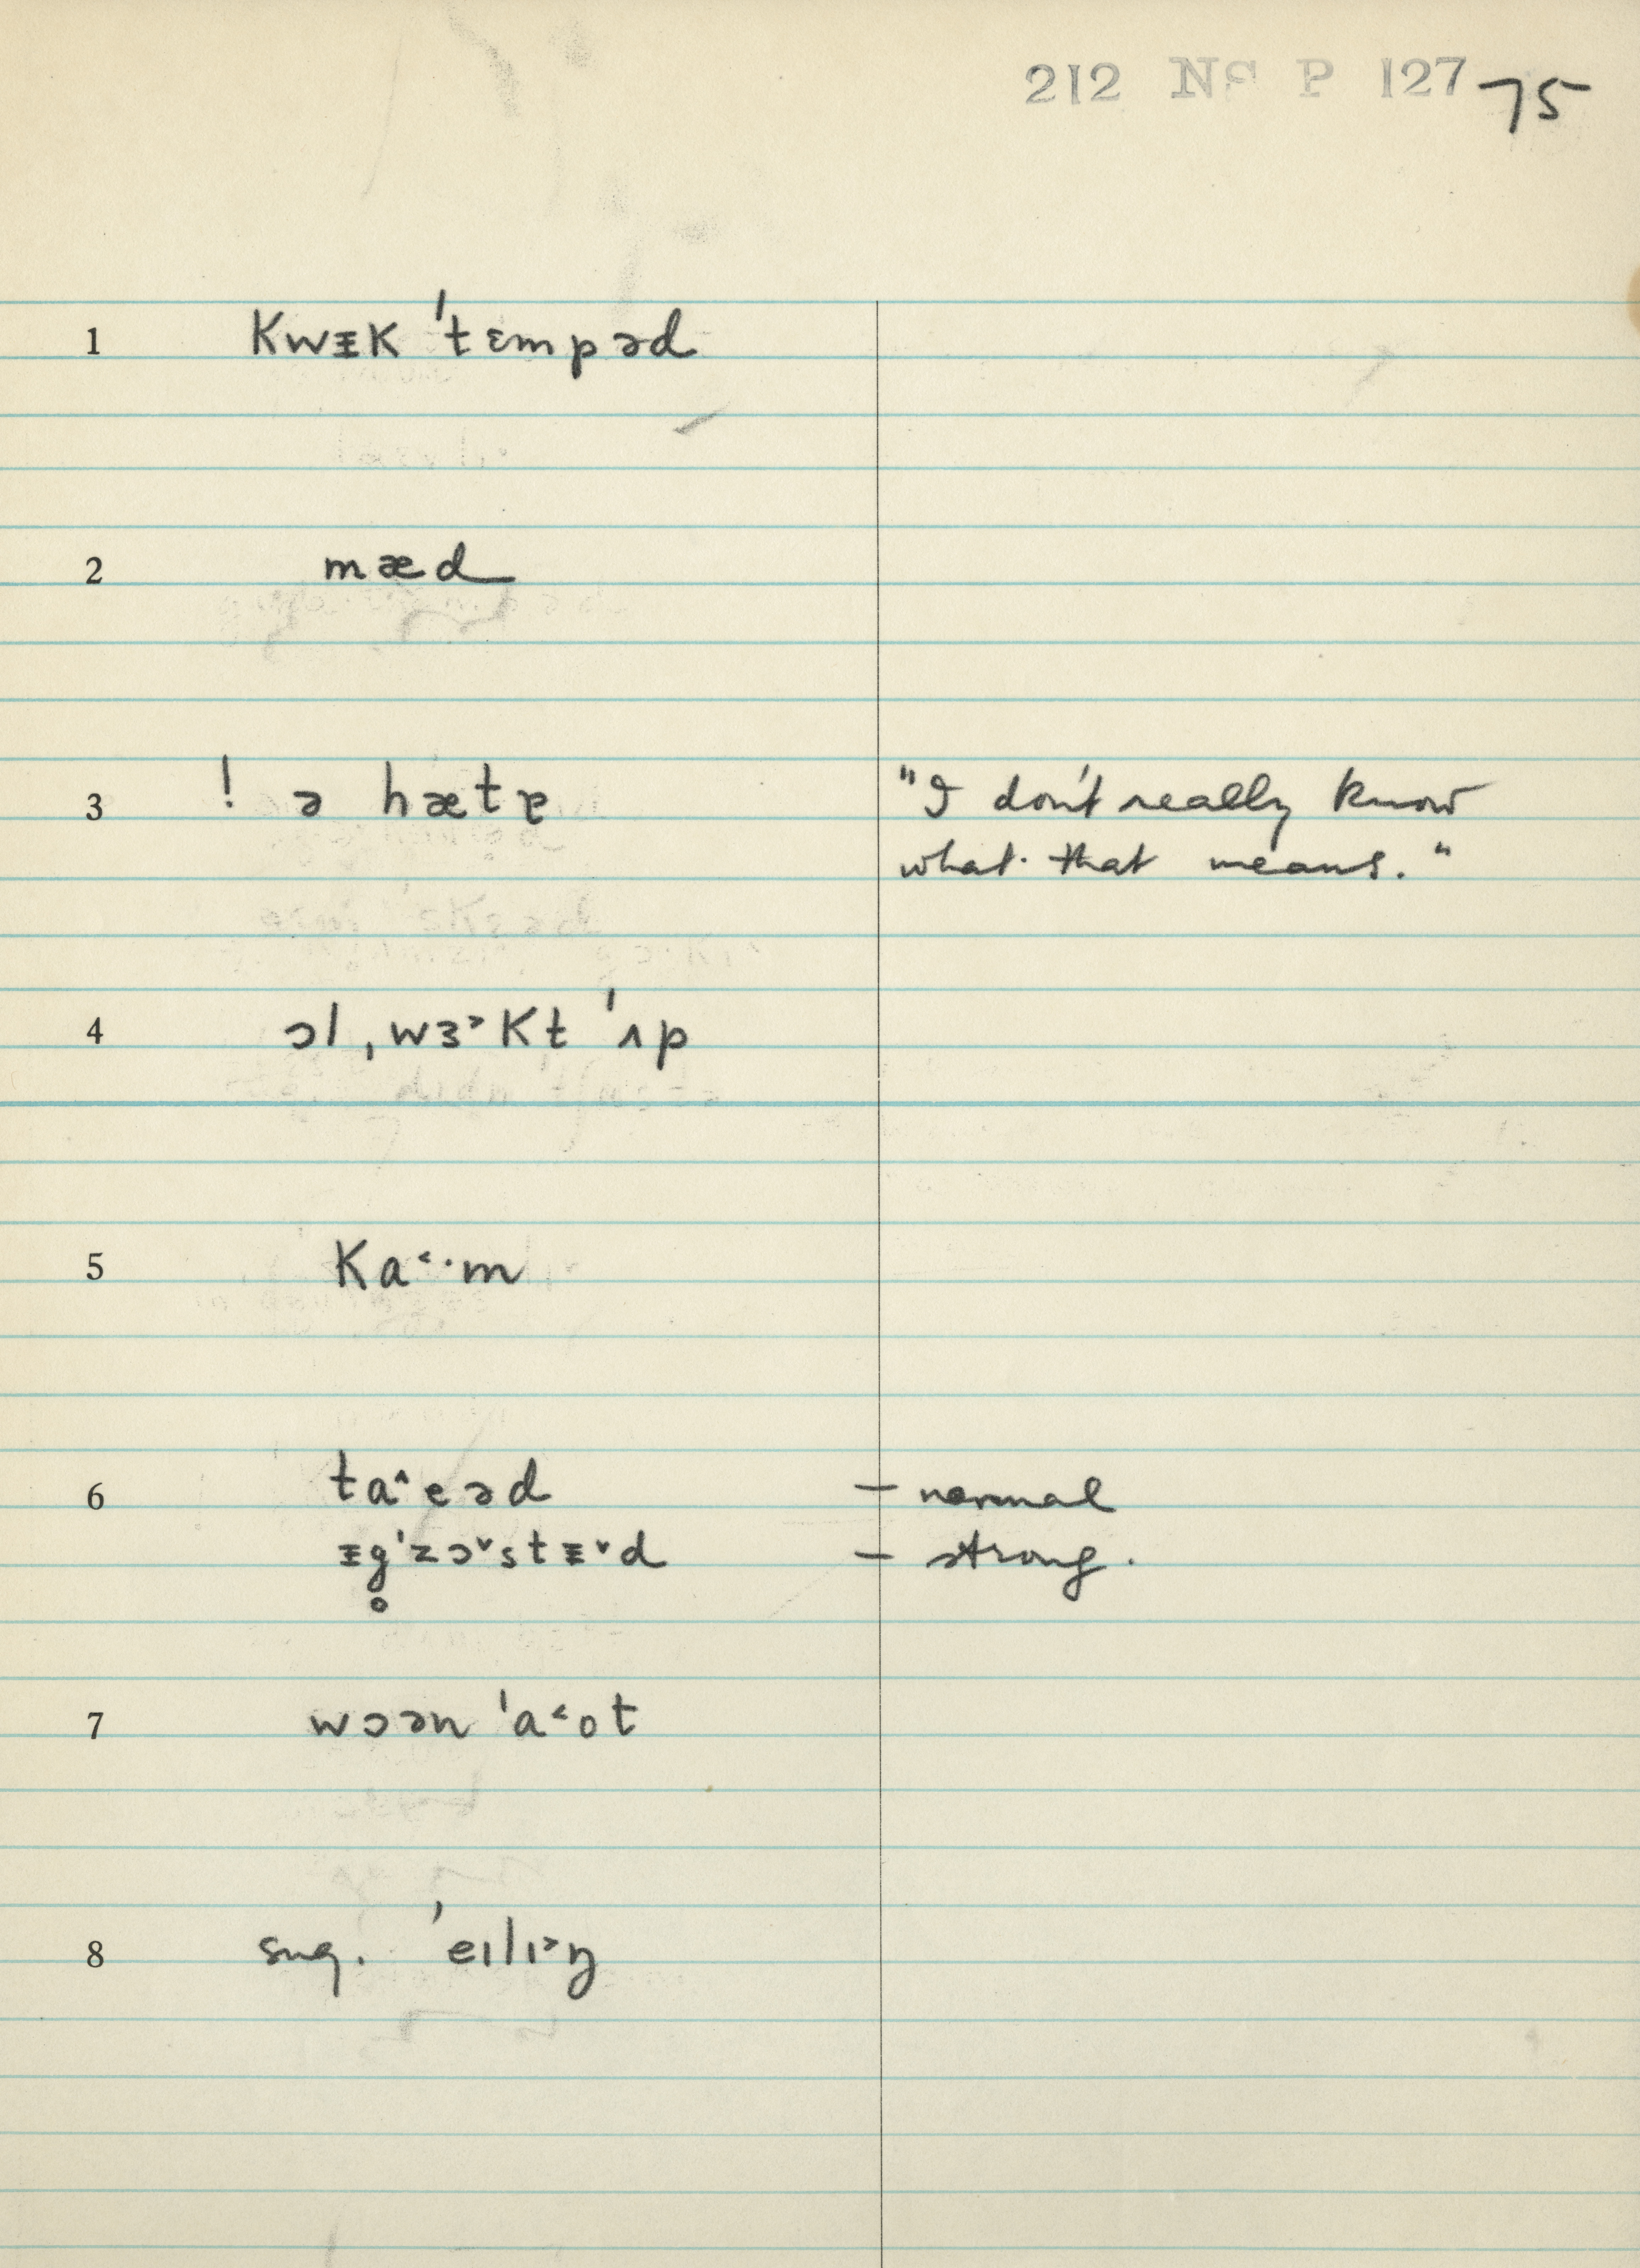 212 NS P 127 75
1 kwᵻk ˈtɛmpəd
2 mæd
3 ! ə hætɐ "I don't really know
what that means."
4 ɔl ˌwɜ˃kt ˈʌp
5 ka˂·m
6 ta˄eəd – normal
ᵻg̥ˈzɔ˅stᵻ˅d – strong.
7 wɔən ˈa˂ot
8 sug. ˈeɪlɪ˃ŋ